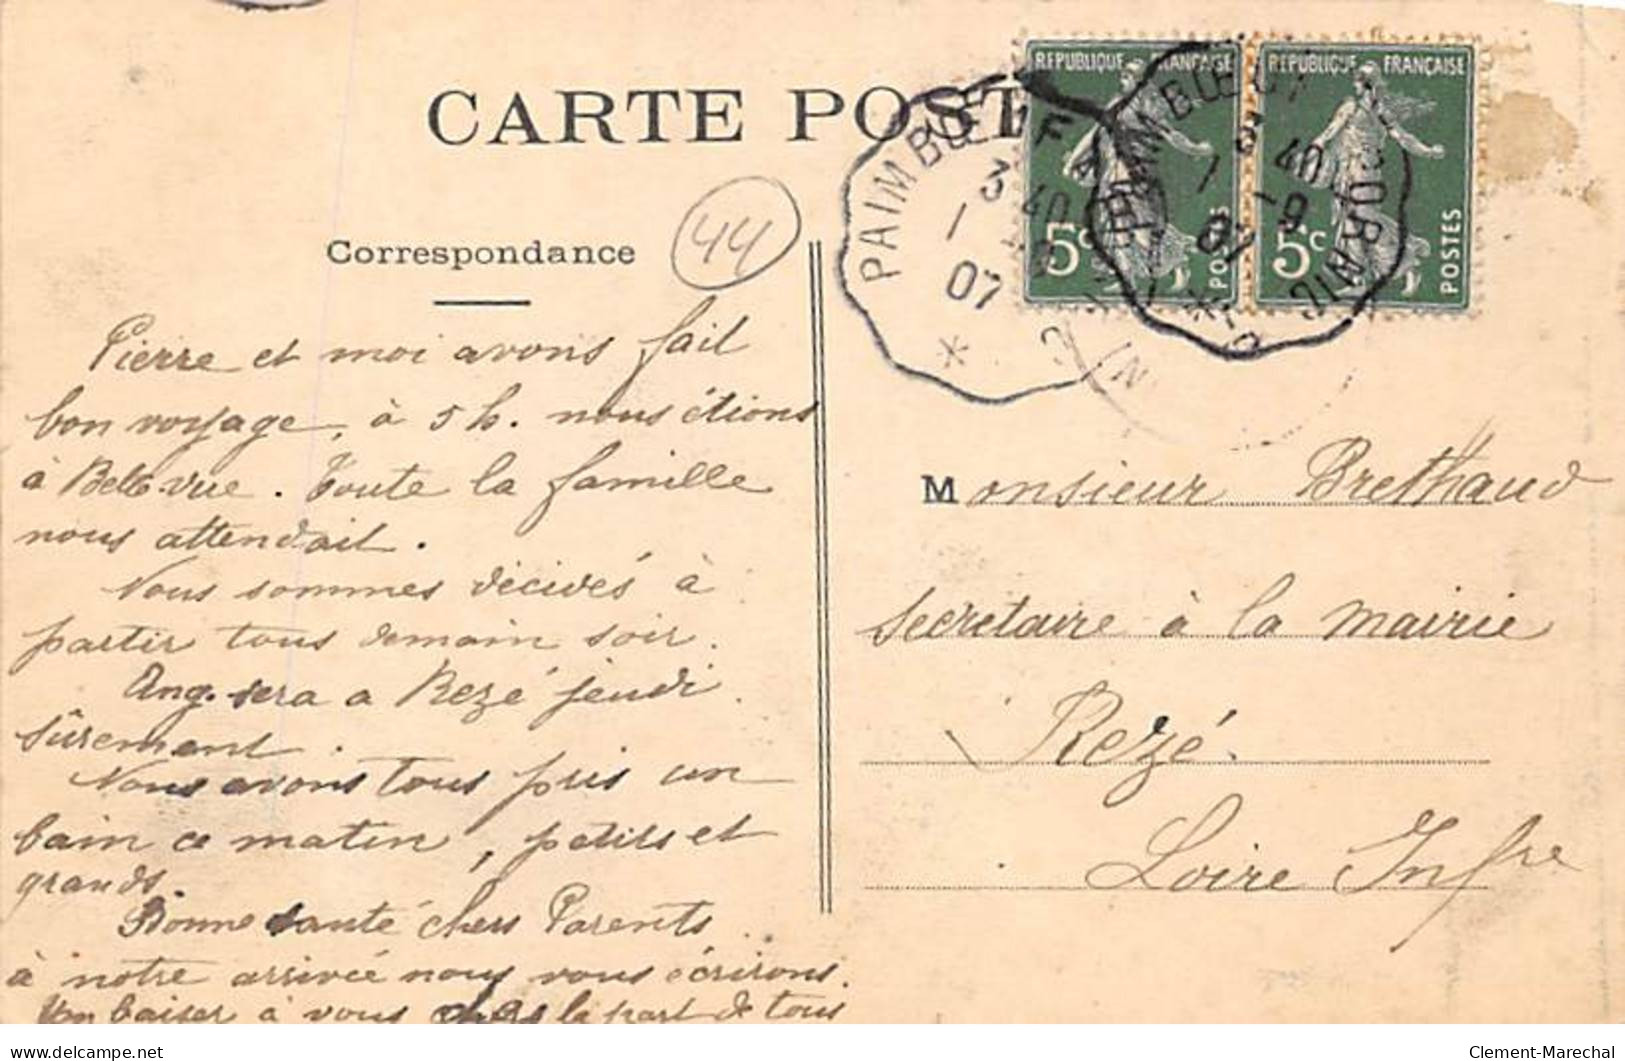 CARTE POST
RÉPUBLIQUE FRANÇAISE
RÉPUBLIQUE FRANÇAISE
5c POSTES
5c POSTES
PAIMBŒUF
3 40
1
07
PORNIC
40
1 -9
07
44
Correspondance
Pierre et moi avons fait
bon voyage, à 5 h. nous étions
à Bellevue. Toute la famille
nous attendait.
Nous sommes décidés à
partir tous demain soir.
Ang. sera a Rezé jeudi
sûrement.
Nous avons tous pris un
bain ce matin, petits et
grands.
Bonne santé chers Parents
à notre arrivée nous vous écrirons.
Un baiser à vous chers la part de tous
Monsieur Brethaud
secretaire à la mairie
Rezé.
Loire Infre
www.delcampe.net
Clement-Marechal